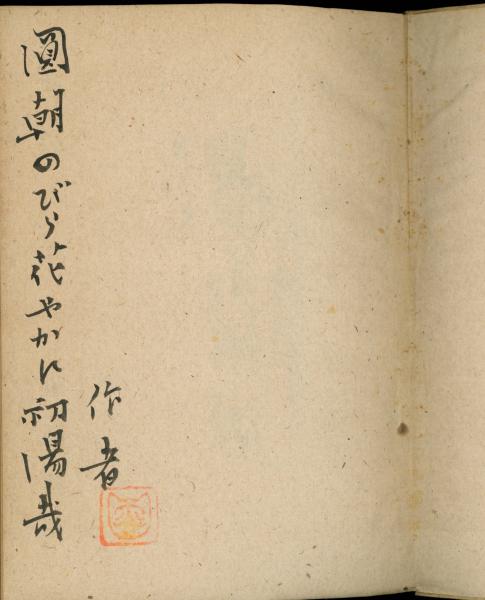 圓朝のびら花やかに初湯哉
作者